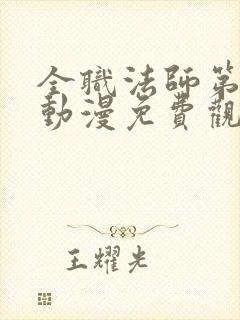 全職法師第
動漫免費觀
王耀光